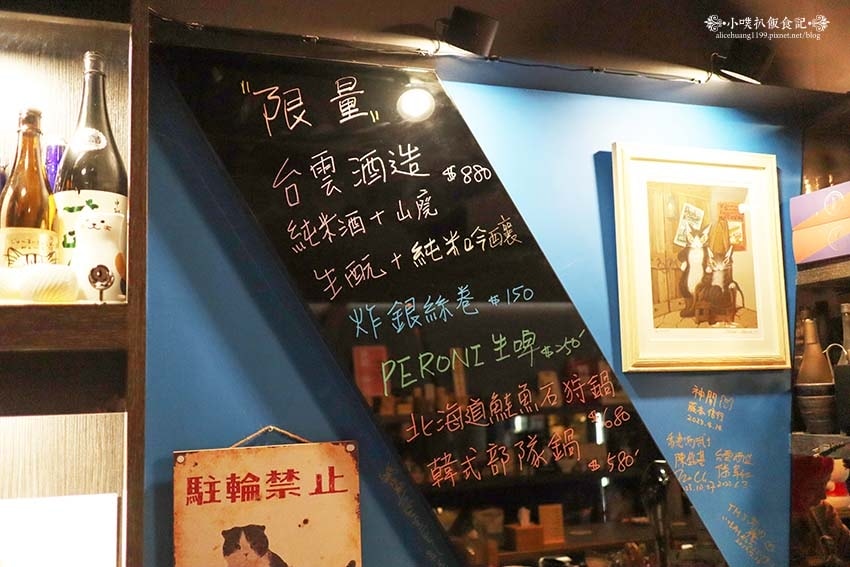 小噗扒飯食記
alicehuang1199.pixnet.net/blog
"限量"
台雲酒造 $880
純米酒+山廃
生酛+純米吟釀
炸銀絲卷 $150
PERONI生啤 $250
北海道鮭魚石狩鍋 $680
韓式部隊鍋 $580
駐輪禁止
神開
2023.4.16